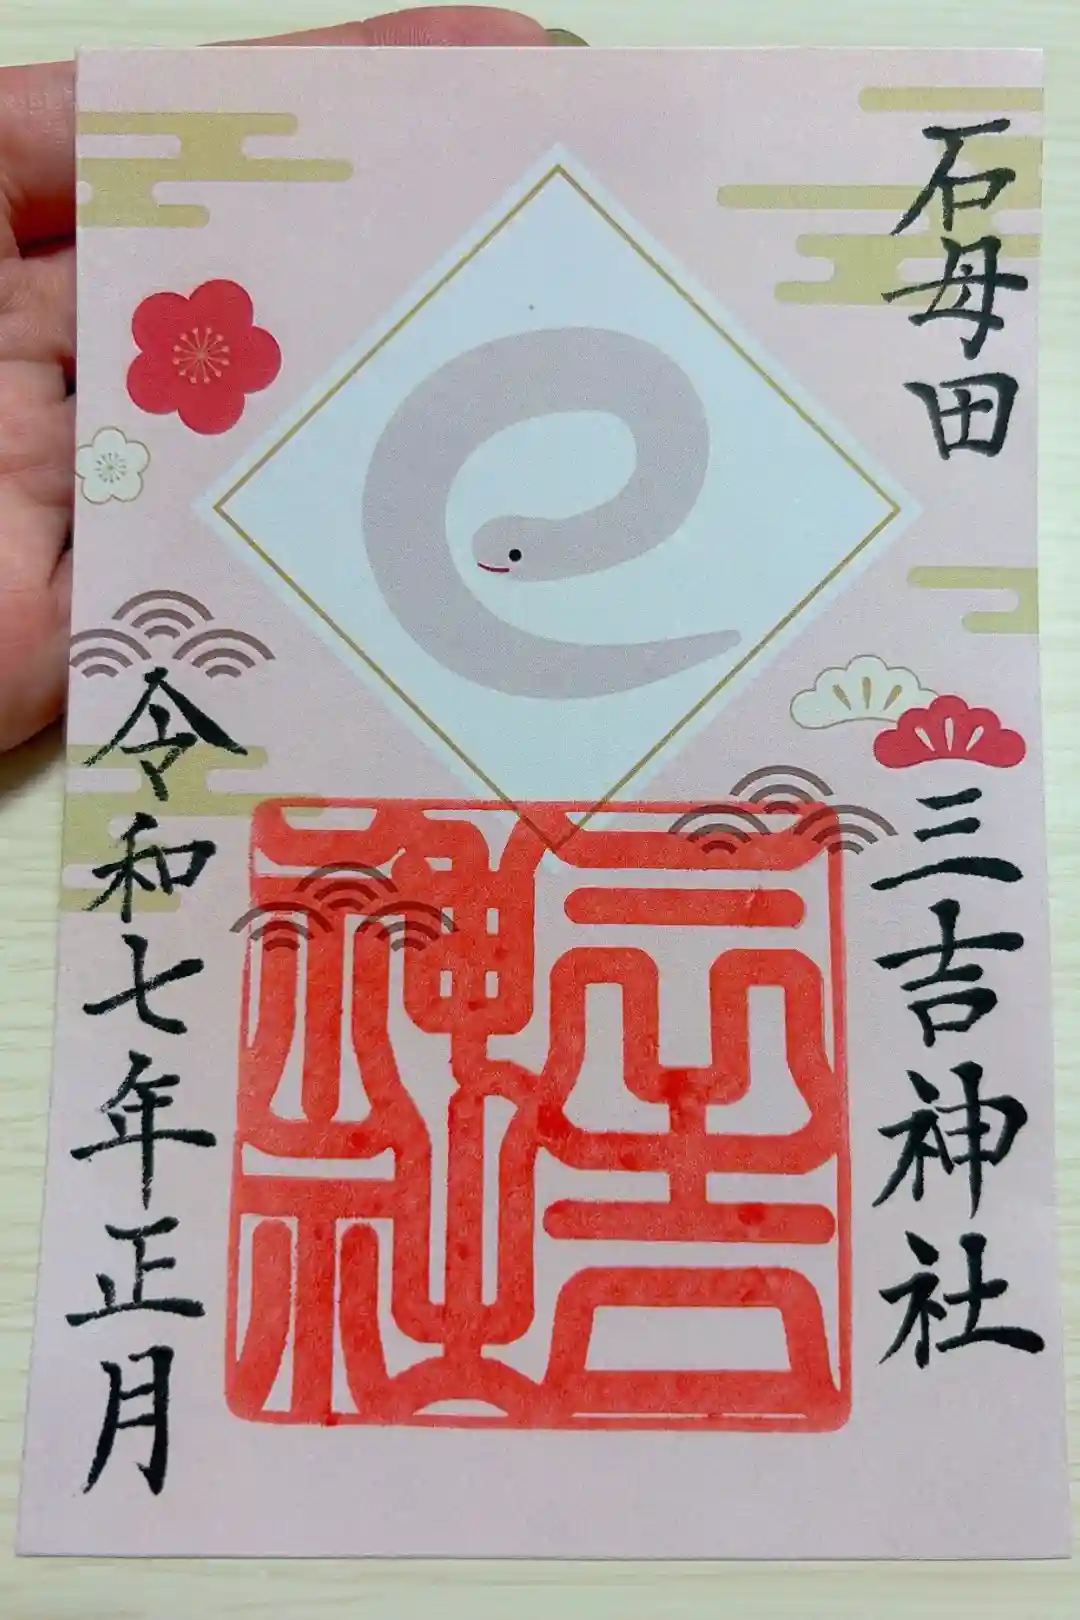 石母田
三吉神社
令和七年正月
三吉神社